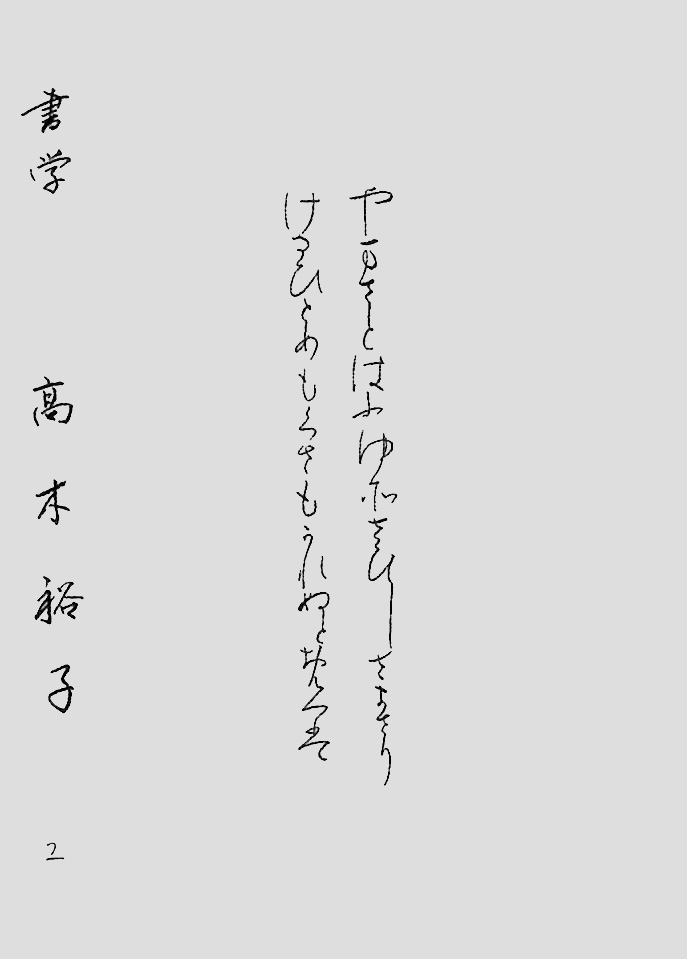 やまさとはふゆそさひしさまさり
けるひとめもくさもかれぬとおもへは
書学 高木裕子 2